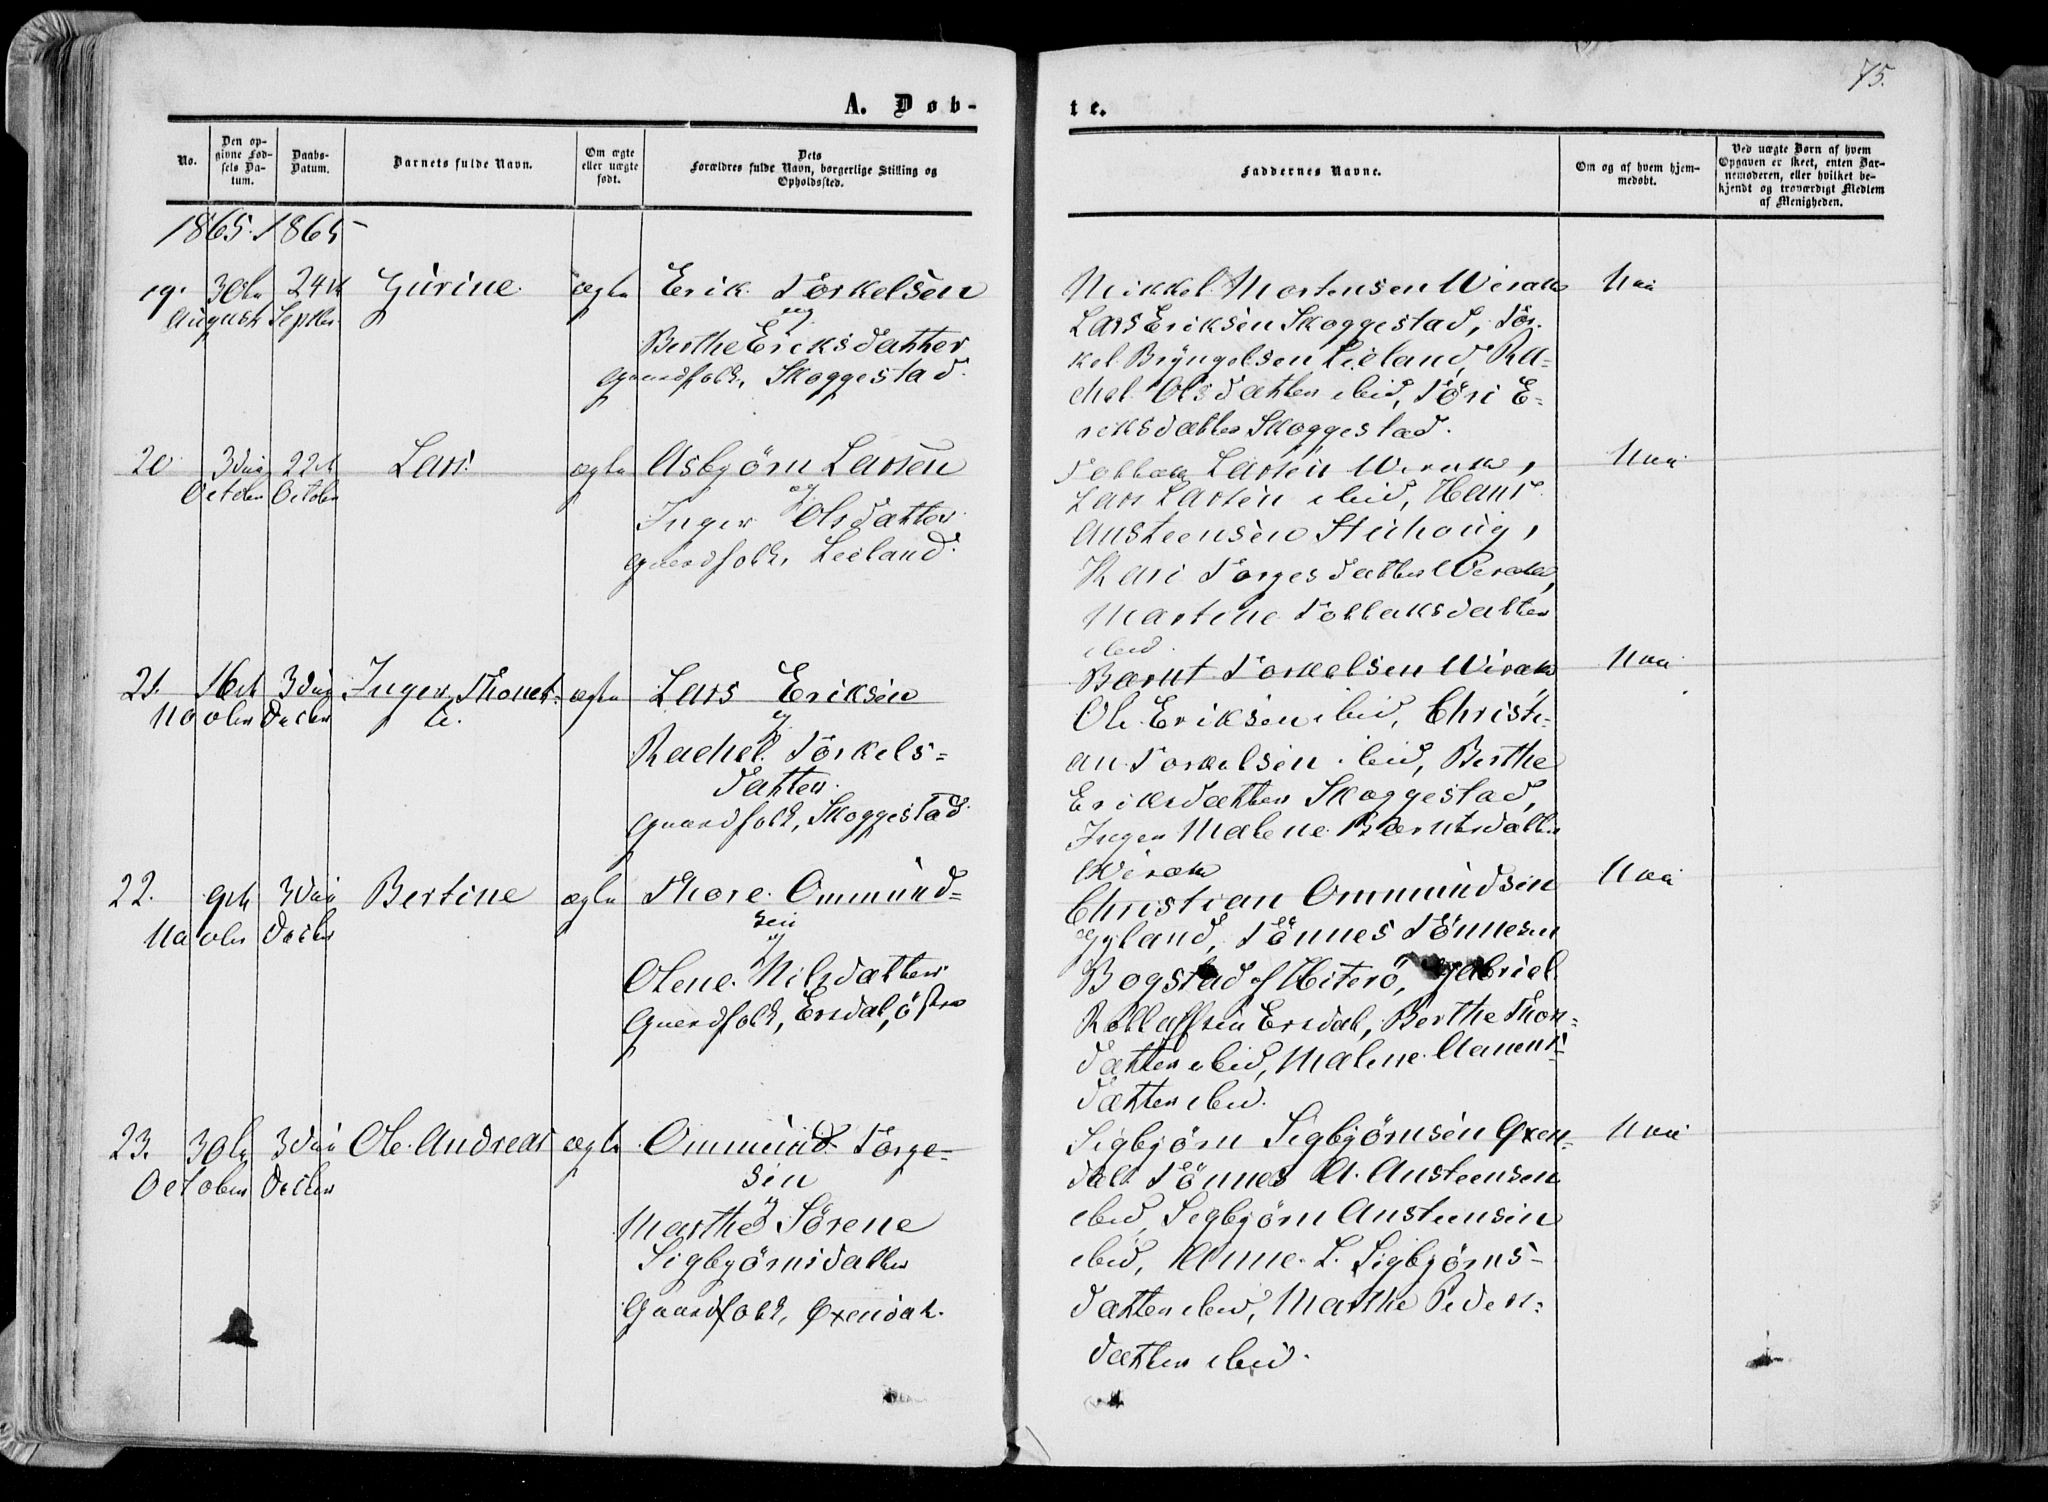 75.
A. Døb-
te.
No.
Den op-
givne Fød-
sels Da-
tum.
Daabs-
Datum.
Barnets fulde Navn.
Om ægte
eller uægte
født.
Dets
Forældres fulde Navn, borgerlige Stilling og
Opholdssted.
Faddernes Navne.
Om og af hvem hjem-
medøbt.
Ved uægte Børn af hvem
Opgaven er skeet, enten Bar-
nemoderen, eller hvilket be-
kjendt og troværdigt Medlem
af Menigheden.
1865. 1865
19. 30te 24de Gurine. ægte Erik Torkelsen
August Septbr. og
Berthe Eriksdatter
Gaardfolk, Skoggestad.
Mikkel Mortensen Wirak
Lars Eriksen Skoggestad, Tor-
kel Bryngelsen Leeland, Ra-
chel Olsdatter ibid, Tóri E-
riksdatter Skoggestad.
20 3die 22de Lars. ægte Asbjørn Larsen
October October og
Inger Olsdatter
Gaardfolk, Leeland.
Tollak Larsen Wirak,
Lars Larsen ibid, Hans
Austeensen Stuhoug,
Kari Torgesdatter Wirak,
Martine Tollaksdatter
ibid.
21. 16de 3die Inger Thonet- ægte Lars Eriksen
Novbr Decbr te. og
Rachel Torkels-
datter.
Gaardfolk, Skoggestad.
Bernt Torkelsen Wirak
Ole Eriksen ibid, Christi-
an Torkelsen ibid, Berthe
Eriksdatter Skoggestad,
Inger Malene Berntsdatter
Wirak
22. 9de 3die Bertine ægte Thore Ommund-
Novbr Decbr sen
og
Olene Nilsdatter
Gaardfolk, Ersdal, østre
Christian Ommundsen
Egeland, Tönnes Tönnesen
Bogstad af Hiterö, Gabriel
Rollaffsen Ersdal, Berthe Thors-
datter ibid, Malene
datter ibid.
23. 30te 3die Ole Andreas ægte Ommund Torge-
October Decbr sen
og
Marthe Sørene
Sigbjørnsdatter
Gaardfolk, Øxendal.
Sigbjørn Sigbjørnsen Øxen-
dal Tönnes A. Austeensen
ibid, Sigbjørn Austeensen
ibid, Anne L. Sigbjørns-
datter ibid, Marthe Peders-
datter ibid.